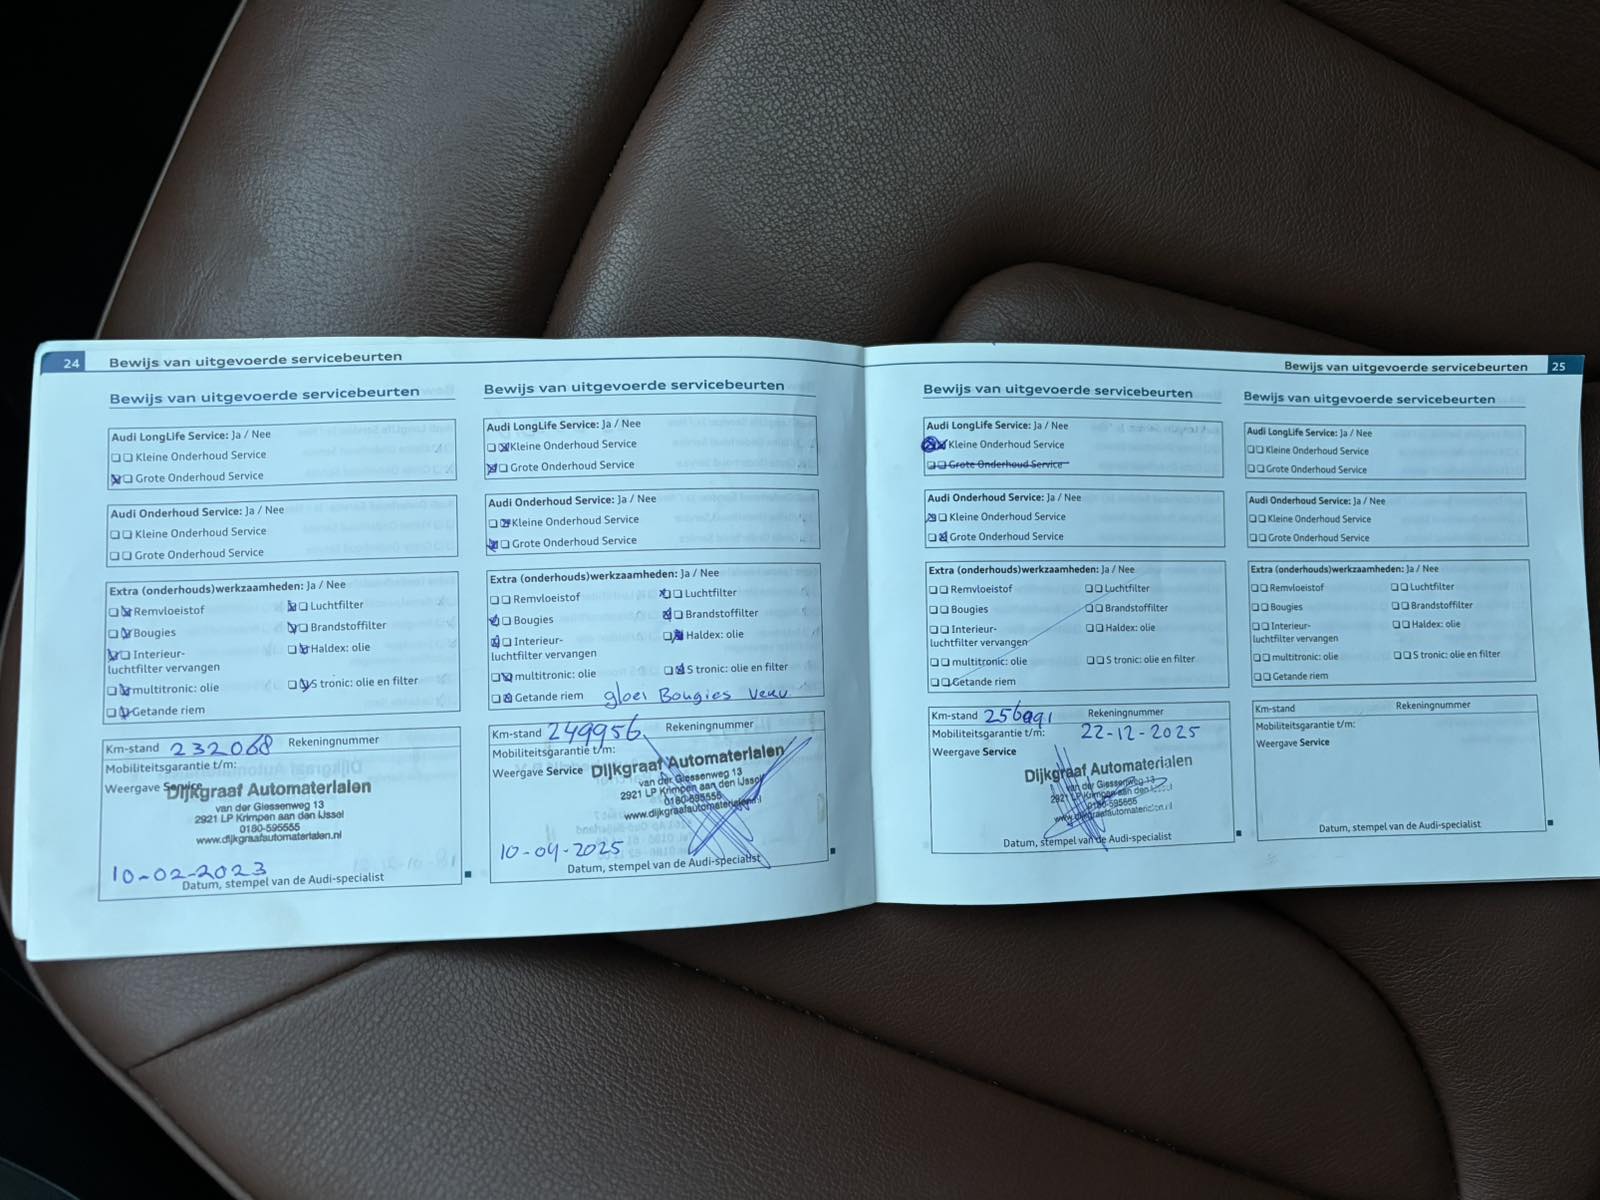 24 Bewijs van uitgevoerde servicebeurten
Bewijs van uitgevoerde servicebeurten
Audi LongLife Service: Ja / Nee
Kleine Onderhoud Service
Grote Onderhoud Service
Audi Onderhoud Service: Ja / Nee
Kleine Onderhoud Service
Grote Onderhoud Service
Extra (onderhouds)werkzaamheden: Ja / Nee
Remvloeistof Luchtfilter
Bougies Brandstoffilter
Interieur- Haldex: olie
luchtfilter vervangen
multitronic: olie S tronic: olie en filter
Getande riem
Km-stand 232068 Rekeningnummer
Mobiliteitsgarantie t/m:
Weergave Service
Dijkgraaf Automaterialen
van der Giessenweg 13
2921 LP Krimpen aan den IJssel
0180-595555
www.dijkgraafautomaterialen.nl
10-02-2023
Datum, stempel van de Audi-specialist
Bewijs van uitgevoerde servicebeurten
Audi LongLife Service: Ja / Nee
Kleine Onderhoud Service
Grote Onderhoud Service
Audi Onderhoud Service: Ja / Nee
Kleine Onderhoud Service
Grote Onderhoud Service
Extra (onderhouds)werkzaamheden: Ja / Nee
Remvloeistof Luchtfilter
Bougies Brandstoffilter
Interieur- Haldex: olie
luchtfilter vervangen
multitronic: olie S tronic: olie en filter
Getande riem gloei Bougies Verv.
Km-stand 249956 Rekeningnummer
Mobiliteitsgarantie t/m:
Weergave Service
Dijkgraaf Automaterialen
van der Giessenweg 13
2921 LP Krimpen aan den IJssel
0180-595555
www.dijkgraafautomaterialen.nl
10-04-2025
Datum, stempel van de Audi-specialist
Bewijs van uitgevoerde servicebeurten 25
Bewijs van uitgevoerde servicebeurten
Audi LongLife Service: Ja / Nee
Kleine Onderhoud Service
Grote Onderhoud Service
Audi Onderhoud Service: Ja / Nee
Kleine Onderhoud Service
Grote Onderhoud Service
Extra (onderhouds)werkzaamheden: Ja / Nee
Remvloeistof Luchtfilter
Bougies Brandstoffilter
Interieur- Haldex: olie
luchtfilter vervangen
multitronic: olie S tronic: olie en filter
Getande riem
Km-stand Rekeningnummer
Mobiliteitsgarantie t/m: 22-12-2025
Weergave Service
Dijkgraaf Automaterialen
van der Giessenweg 13
2921 LP Krimpen aan den IJssel
0180-595555
www.dijkgraafautomaterialen.nl
Datum, stempel van de Audi-specialist
Bewijs van uitgevoerde servicebeurten
Audi LongLife Service: Ja / Nee
Kleine Onderhoud Service
Grote Onderhoud Service
Audi Onderhoud Service: Ja / Nee
Kleine Onderhoud Service
Grote Onderhoud Service
Extra (onderhouds)werkzaamheden: Ja / Nee
Remvloeistof Luchtfilter
Bougies Brandstoffilter
Interieur- Haldex: olie
luchtfilter vervangen
multitronic: olie S tronic: olie en filter
Getande riem
Km-stand Rekeningnummer
Mobiliteitsgarantie t/m:
Weergave Service
Datum, stempel van de Audi-specialist